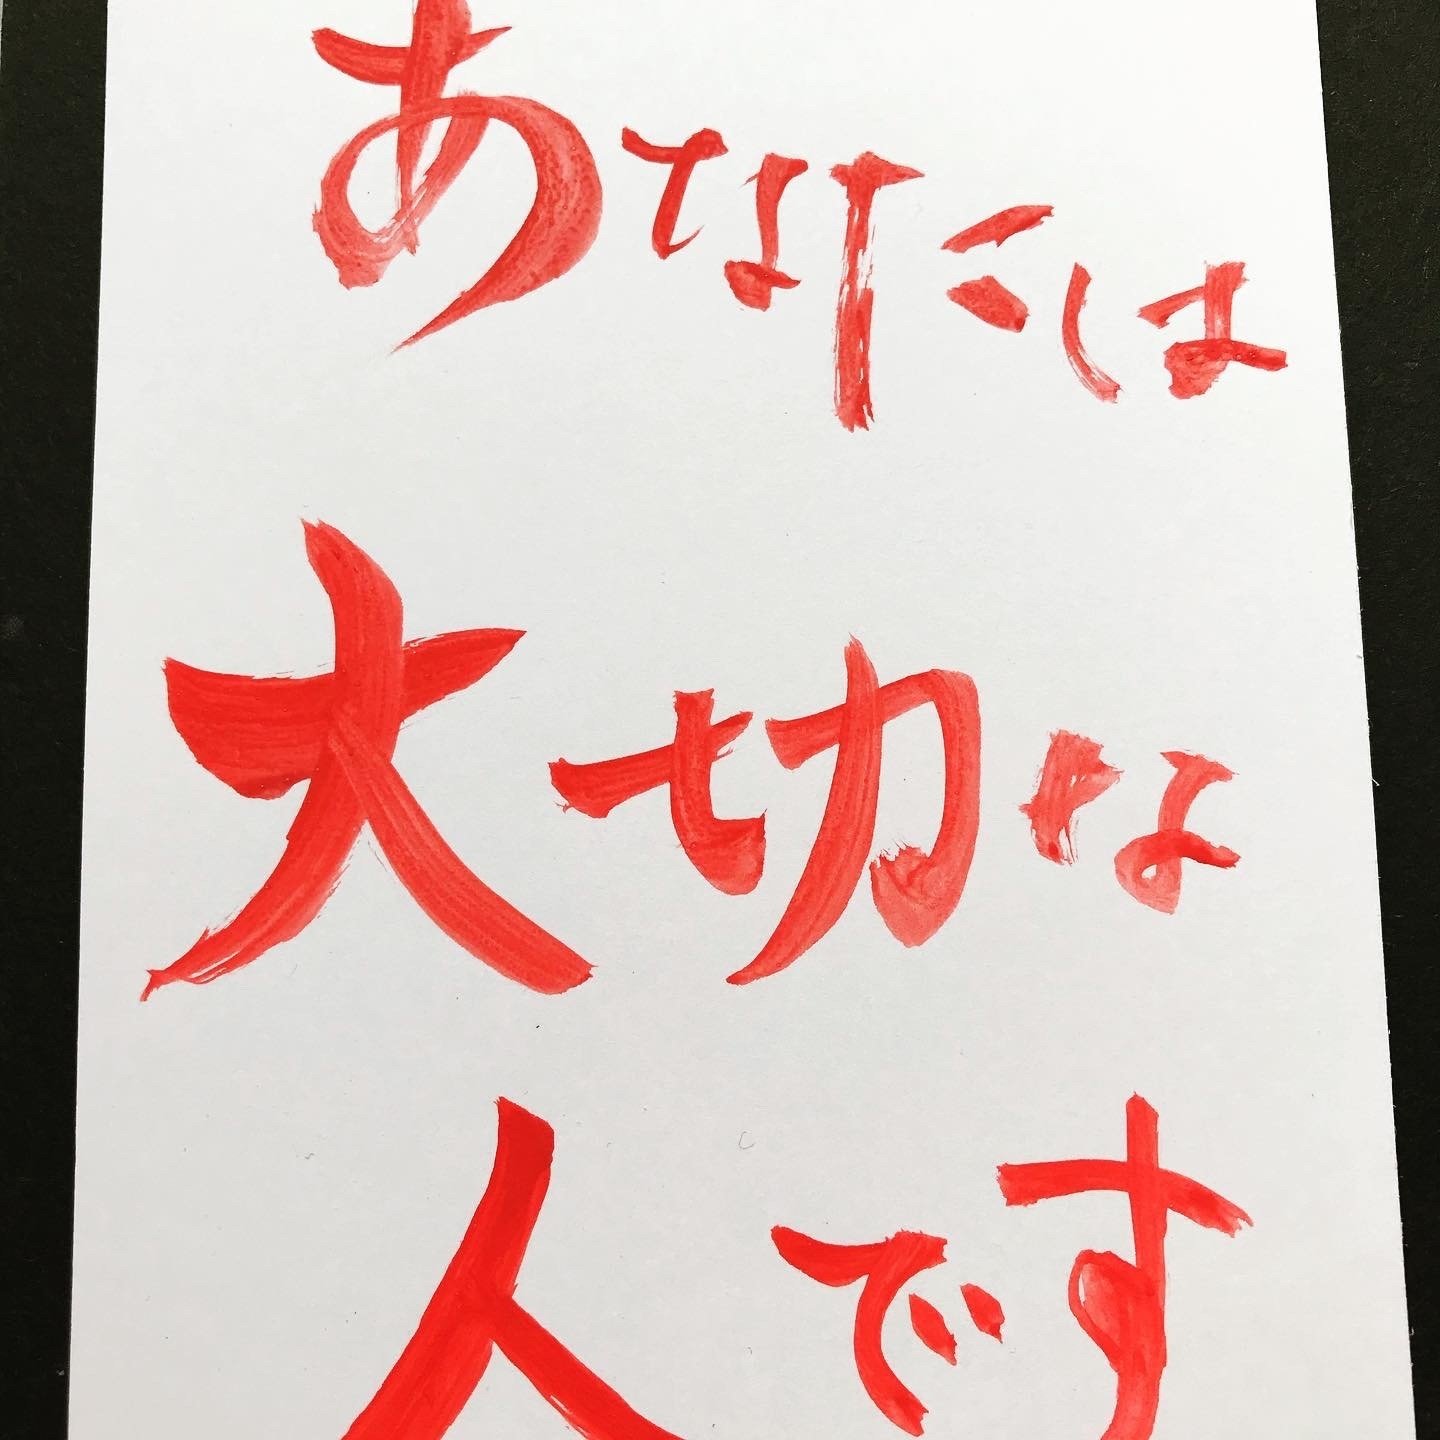 あなたは
大切な
人です